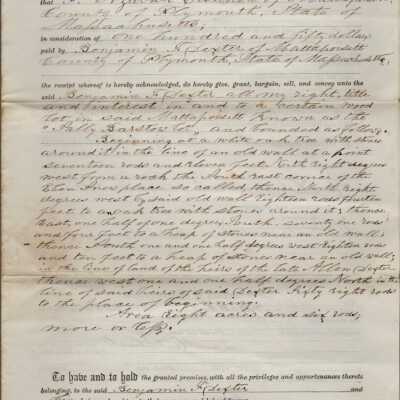 County of Plymouth, State of
Massachusetts,
in consideration of One hundred and fifty dollars
paid by Benjamin F. Dexter of Mattapoisett
County of Plymouth, State of Massachusetts,
the receipt whereof is hereby acknowledged, do hereby give, grant, bargain, sell, and convey unto the
said Benjamin F. Dexter all my right, title
and interest in and to a certain wood
lot in said Mattapoisett known as the
"Sally Barstow lot," and bounded as follows.
Beginning at a white oak tree with stones
around it in the line of an old wall at a point
seventeen rods and eleven feet North eight degrees
west from a rock the North East corner of the
place so called thence North Eight
degrees west by said old wall Eighteen rods
feet to a oak tree with stones around it; thence
East, one half of one degree South seventy one rods
and four feet to a heap of stones near an old wall;
thence South one and one half degrees west Eighteen rods
and ten feet to a heap of stones near an old wall;
in the line of land of the heirs of the late Dexter
thence west one and one half degrees North in the
line of said heirs of said Dexter Sixty Eight rods
to the place of beginning.
Area Eight acres and six rods,
more or less.
To have and to hold the granted premises, with all the privileges and appurtenances thereto
belonging, to the said Benjamin F. Dexter and